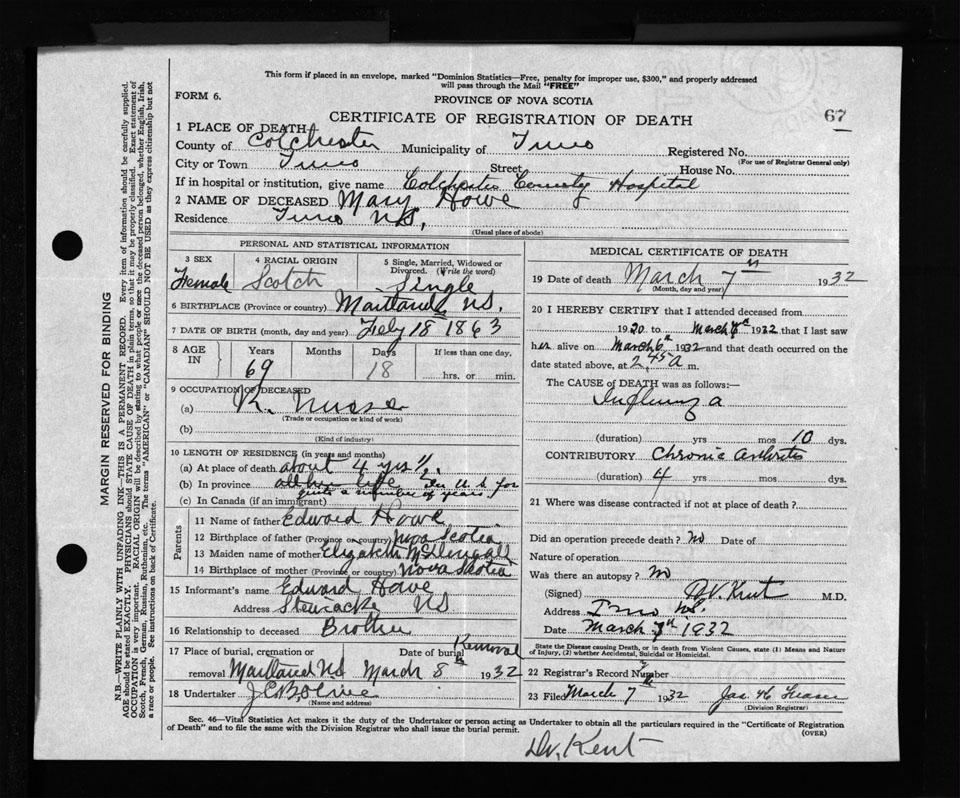 This form if placed in an envelope, marked "Dominion Statistics—Free, penalty for improper use, $300," and properly addressed
will pass through the Mail "FREE"
FORM 6.
PROVINCE OF NOVA SCOTIA
67
CERTIFICATE OF REGISTRATION OF DEATH
1 PLACE OF DEATH
County of Colchester Municipality of Truro Registered No.
(For use of Registrar General only)
City or Town Truro Street House No.
If in hospital or institution, give name Colchester County Hospital
2 NAME OF DECEASED Mary Howe
Residence Truro N.S.
(Usual place of abode)
PERSONAL AND STATISTICAL INFORMATION
3 SEX 4 RACIAL ORIGIN 5 Single, Married, Widowed or
Divorced. (Write the word)
Female Scotch Single
6 BIRTHPLACE (Province or country) Maitland N.S.
7 DATE OF BIRTH (month, day and year) Feby 18 1863
8 AGE IN Years Months Days If less than one day,
69 18 hrs. or min.
9 OCCUPATION OF DECEASED
(a) R. Nurse
(Trade or occupation or kind of work)
(b)
(Kind of industry)
10 LENGTH OF RESIDENCE (in years and months)
(a) At place of death about 4 yrs ½.
(b) In province all her life In U.S. for
quite a number of years.
(c) In Canada (if an immigrant)
Parents
11 Name of father Edward Howe
12 Birthplace of father (Province or country) Nova Scotia
13 Maiden name of mother Elizabeth
14 Birthplace of mother (Province or country) Nova Scotia
15 Informant's name Edward Howe
Address Stewiacke NS
16 Relationship to deceased Brother
17 Place of burial, cremation or Date of burial Removal
removal Maitland NS March 8th 1932
18 Undertaker
(Name and address)
MEDICAL CERTIFICATE OF DEATH
19 Date of death March 7th 1932
(Month, day and year)
20 I HEREBY CERTIFY that I attended deceased from
1920 to March 7th 1932 that I last saw
her alive on March 6th 1932 and that death occurred on the
date stated above, at 2.45 A m.
The CAUSE of DEATH was as follows:—
Influenza
(duration) yrs mos 10 dys.
CONTRIBUTORY Chronic arthritis
(duration) 4 yrs. mos. dys.
21 Where was disease contracted if not at place of death?
Did an operation precede death? no Date of
Nature of operation
Was there an autopsy? no
(Signed) Kent M.D.
Address Truro N.S.
Date March 7th 1932
State the Disease causing Death, or in death from Violent Causes, state (1) Means and Nature
of Injury, (2) whether Accidental, Suicidal or Homicidal.
22 Registrar's Record Number
23 Filed March 7th 1932 Jas. H. Fraser
(Division Registrar)
Sec. 46—Vital Statistics Act makes it the duty of the Undertaker or person acting as Undertaker to obtain all the particulars required in the "Certificate of Registration
of Death" and to file the same with the Division Registrar who shall issue the burial permit.
(OVER)
Dr. Kent
MARGIN RESERVED FOR BINDING
N.B.—WRITE PLAINLY WITH UNFADING INK—THIS IS A PERMANENT RECORD. Every item of information should be carefully supplied.
AGE should be stated EXACTLY. PHYSICIANS should STATE CAUSE OF DEATH in plain terms, so that it may be properly classified. Exact statement of
OCCUPATION is very important. RACIAL ORIGIN will be described by stating to what people or race the deceased person belonged, whether English, Irish,
Scotch, French, German, Russian, Ruthenian, etc. The terms "AMERICAN" or "CANADIAN" SHOULD NOT BE USED as they express citizenship but not
a race or people. See instructions on back of Certificate.